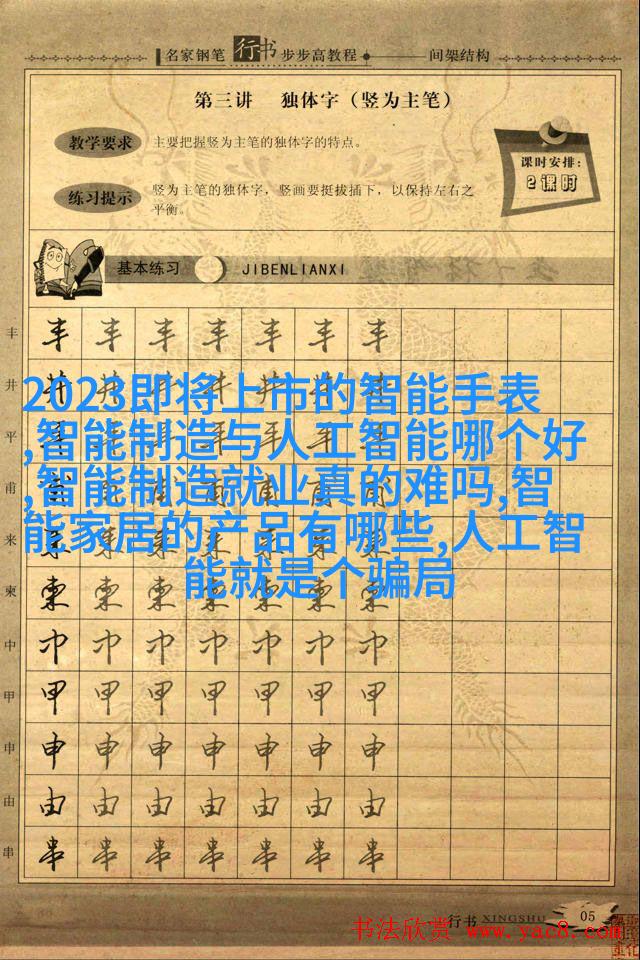 名家钢笔 行书 步步高教程 间架结构
第三讲 独体字（竖为主笔）
教学要求
主要把握竖为主笔的独体字的特点。
课时安排:
2课时
练习提示
竖为主笔的独体字，竖画要挺拔插下，以保持左右之
平衡。
基本练习 JIBENLIANXI
丰 丰 丰 丰 丰 丰 丰 丰
井 井 井 井 井 井 井 井
2023即将上市的智能手表
平
,智能制造与人工智能哪个好
甫
,智能制造就业真的难吗,智
来
能家居的产品有哪些,人工智
能就是个骗局
柬 柬 柬 柬 柬 柬 柬 柬
中 中 中 中 中 中 中 中
甲 甲 甲 甲 甲 甲 甲 甲
申 申 申 申 申 申 申 申
由 由 由 由 由 由 由 由
串 串 串 串 串 串 串 串
行书 XINGSHU 05
书法欣赏 www.yac8.com